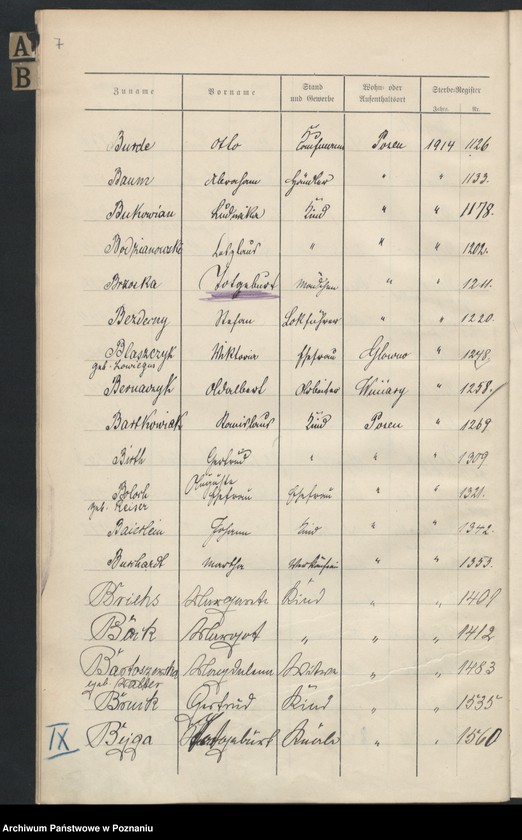 7
A
B
Zuname Vorname Stand und Gewerbe Wohn- oder Aufenthaltsort Sterbe-Register
Jahrg. Nr.
Burde Otto Kaufmann Posen 1914 1126
Baum Abraham Händler " " 1133.
Bukowian Ludwika Kind " " 1178.
Bodzianowski Ladislaus " " " 1202.
Brzoska Totgeburt Mädchen " " 1211.
Bezderny Stefan Lokführer " " 1220.
Blaszczyk Wiktoria Ehefrau Glowno " 1248.
geb.
Bernaczyk Adalbert Arbeiter Winiary " 1258.
Bartkowiak Stanislaus Kind Posen " 1269
Birth Gertrud " " " 1309
Bloch Auguste Ehefrau Ehefrau " " 1321.
geb. Keiser
Baierlein Johann Kind " " 1342.
Burkhardt Martha Verkäuferin " " 1353.
Briehs Margarete Kind " " 1401
Bäik Margot " " " 1412
Bartoszewska Magdalena Witwe " " 1483
geb.
Brusik Gertrud Kind " " 1535
IX Bejga Totgeburt Knabe " " 1560
Archiwum Państwowe w Poznaniu